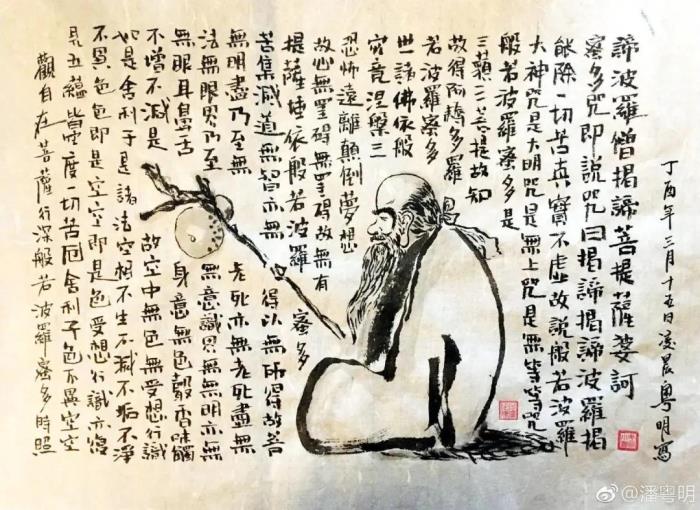 觀自在菩薩行深般若波羅蜜多時照
見五蘊皆空度一切苦厄舍利子色不異空空
不異色色即是空空即是色受想行識亦復
如是舍利子是諸法空相不生不滅不垢不淨
不增不減是故空中無色無受想行識
無眼耳鼻舌身意無色聲香味觸
法無眼界乃至無意識界無無明亦無
無明盡乃至無老死亦無老死盡無
苦集滅道無智亦無得以無所得故菩
提薩埵依般若波羅蜜多
故心無罣礙無罣礙故無有
恐怖遠離顛倒夢想
究竟涅槃三
世諸佛依般
若波羅蜜多
故得阿耨多羅
三藐三菩提故知
般若波羅蜜多是
大神咒是大明咒是無上咒是無等等咒
能除一切苦真實不虛故說般若波羅
蜜多咒即說咒曰揭諦揭諦波羅揭
諦波羅僧揭諦菩提薩婆訶
丁酉年三月十五日凌晨粵明寫
@潘粤明